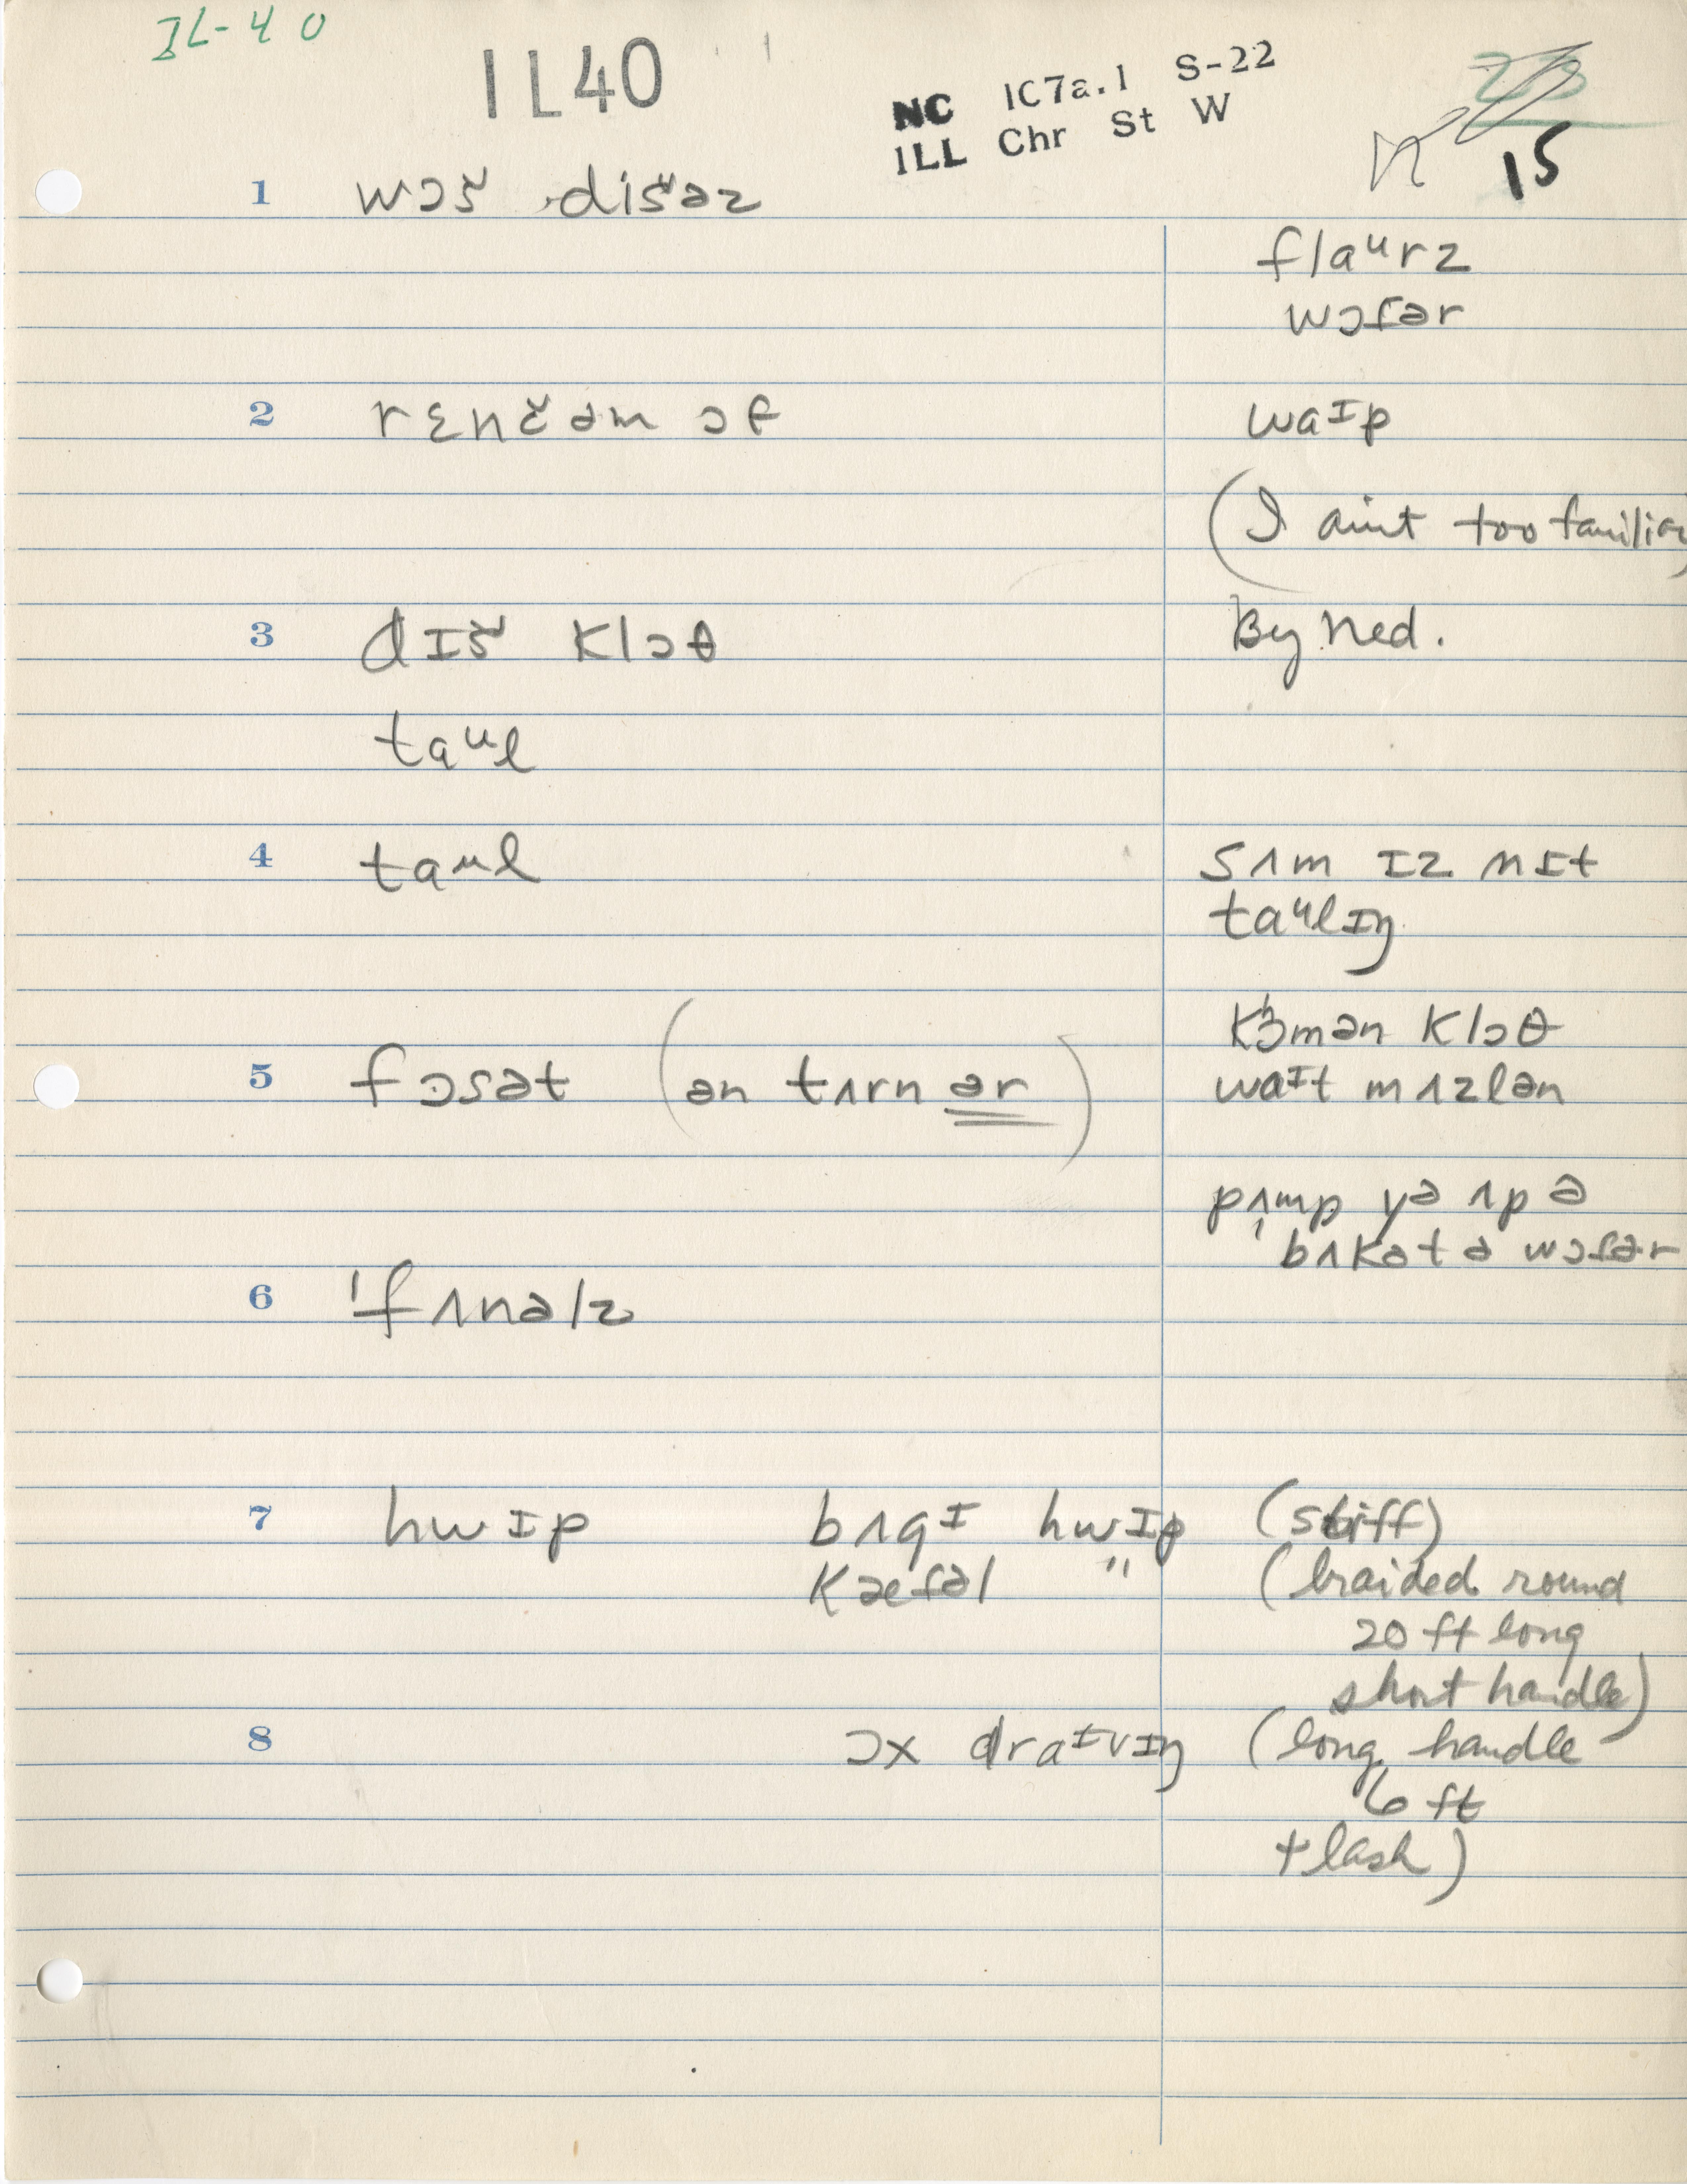 IL-40
IL40
NC 1C7a.1 S-22
ILL Chr St W
23
15
1 wɔš dišəz
flaᵘrz
wɔtər
2 rɛnčəm ɔf
waᴵp
(I aint too familiar)
3 dɪš klɔθ
By Ned.
taᵘl
4 taᵘl
sʌm ɪz nɪt
taᵘlɪŋ
kɔ́mən klɔθ
5 fɔsət (ən tʌrnər)
waᴵt mʌzlən
pʌmp yə ʌp ə
bʌkət ə wɔtər
6 'fʌnəlz
7 hwɪp bʌgɪ hwɪp (stiff)
kæfəl " (braided round
20 ft long
short handle)
8 ɔx draᴵvɪŋ (long handle
6 ft
+ lash)